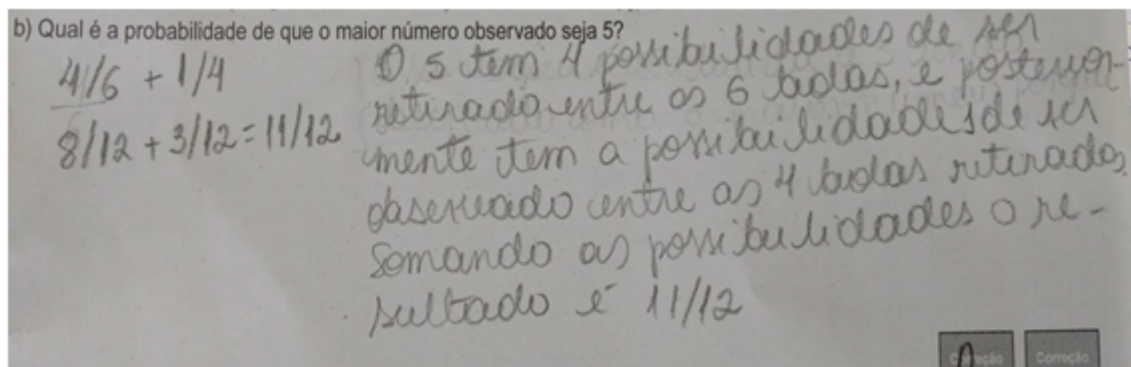 b) Qual é a probabilidade de que o maior número observado seja 5?
4/6 + 1/4
8/12 + 3/12 = 11/12
O 5 tem 4 possibilidades de ser
retirado entre as 6 bolas, e posterior-
mente tem a possibilidade de ser
observado entre as 4 bolas retiradas,
somando as possibilidades o re-
sultado é 11/12
Correção Correção